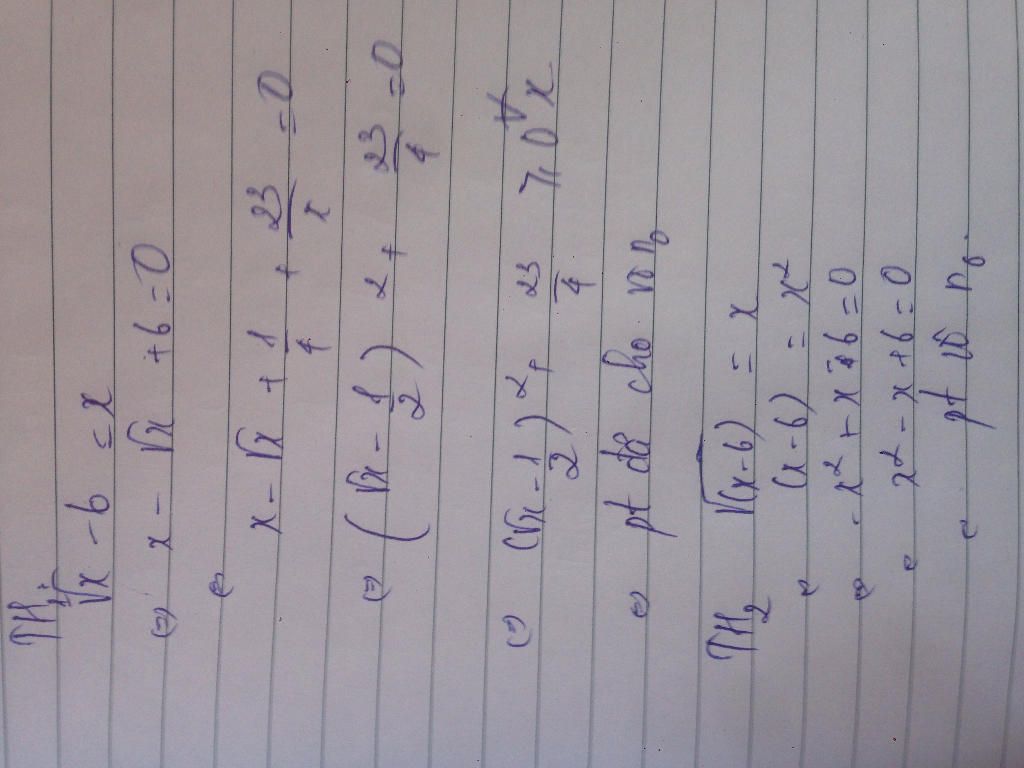 TH1:
√x - 6 = x
⇔ x - √x + 6 = 0
⇔ x - √x + 1/4 + 23/4 = 0
⇔ (√x - 1/2)² + 23/4 = 0
⇔ (√x - 1/2)² + 23/4 ≥ 0 ∀x
⇔ pt đã cho vô no
TH2 √(x-6) = x
⇔ (x-6) = x²
⇔ -x² + x - 6 = 0
⇔ x² - x + 6 = 0
⇔ pt vô no.